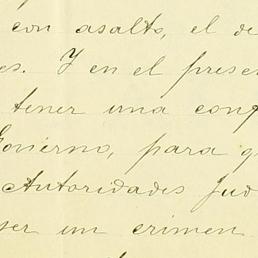 con asalto, el de
es. Y en el prese
tener una con
Gobierno, para q
Autoridades Jud
ser un crimen